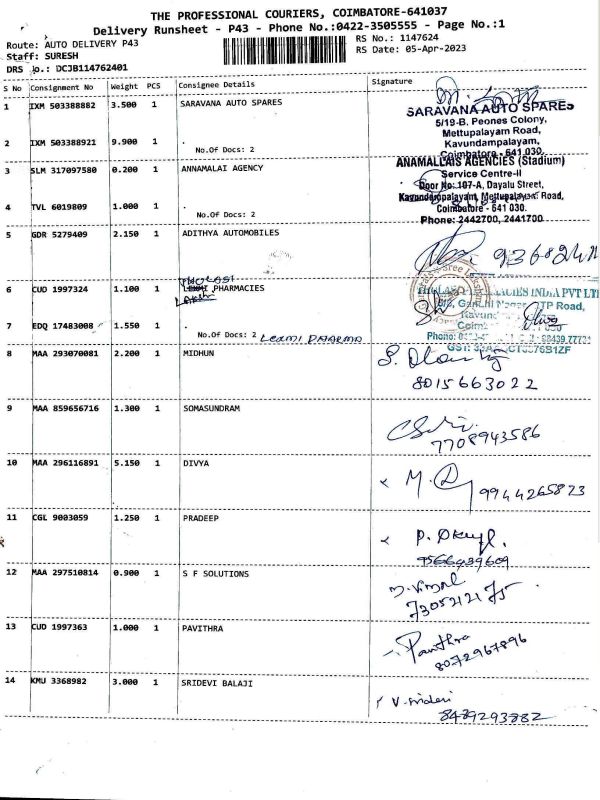 THE PROFESSIONAL COURIERS, COIMBATORE-641037
Delivery Runsheet - P43 - Phone No.:0422-3505555 - Page No.:1
Route: AUTO DELIVERY P43 RS No.: 1147624
Staff: SURESH RS Date: 05-Apr-2023
DRS No.: DCJB114762401
S No Consignment No Weight PCS Consignee Details Signature
1 IXM 503388882 3.500 1 SARAVANA AUTO SPARES
SARAVANA AUTO SPARES
5/19-B, Peones Colony,
Mettupalayam Road,
Kavundampalayam,
Coimbatore - 641 030.
2 IXM 503388921 9.900 1 .
No.Of Docs: 2
3 SLM 317097580 0.200 1 ANNAMALAI AGENCY
ANAMALLAIS AGENCIES (Stadium)
Service Centre-II
Door No: 107-A, Dayalu Street,
Kavundampalayam, Mettupalayam Road,
Coimbatore - 641 030.
Phone: 2442700, 2441700
4 TVL 6019809 1.000 1 .
No.Of Docs: 2
5 GDR 5279409 2.150 1 ADITHYA AUTOMOBILES
6 CUD 1997324 1.100 1 PHARMACIES
INDIA PVT LTD
7 EDQ 17483008 1.550 1 .
No.Of Docs: 2
8 MAA 293070081 2.200 1 MIDHUN
8015663022
9 MAA 859656716 1.300 1 SOMASUNDRAM
7708943586
10 MAA 296116891 5.150 1 DIVYA
9944265823
11 CGL 9003059 1.250 1 PRADEEP
12 MAA 297510814 0.900 1 S F SOLUTIONS
13 CUD 1997363 1.000 1 PAVITHRA
8072967896
14 KMU 3368982 3.000 1 SRIDEVI BALAJI